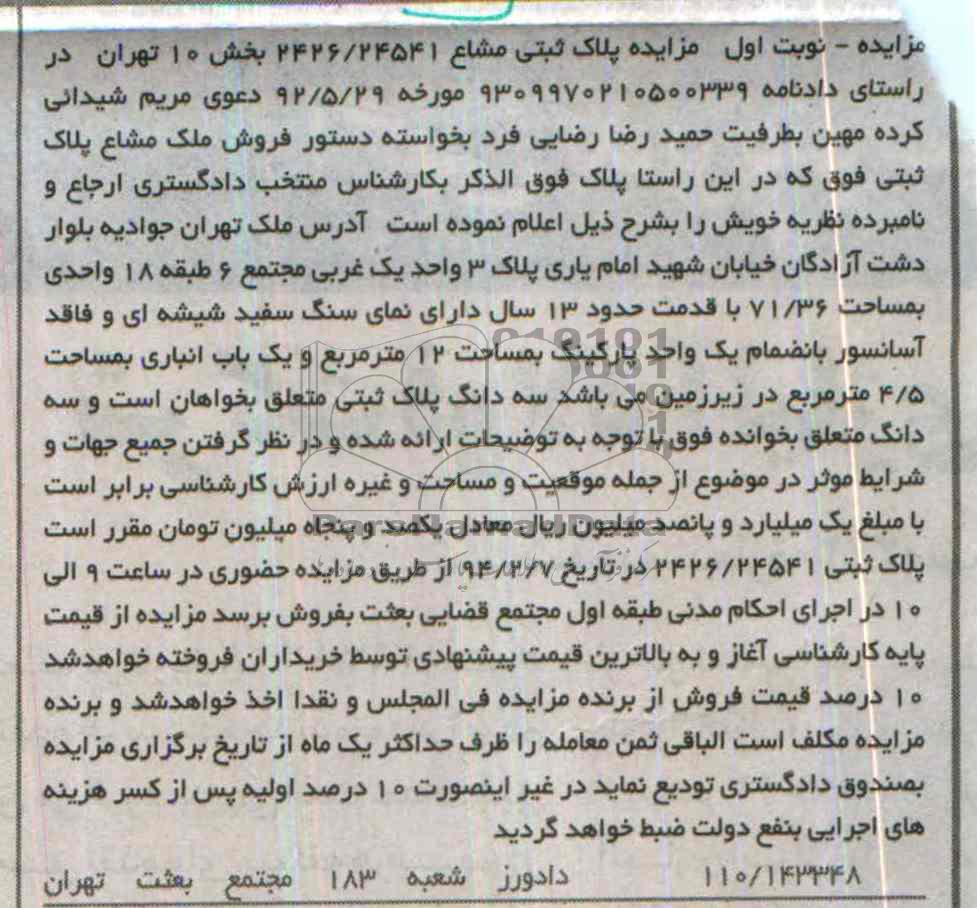 مزایده - نوبت اول مزایده پلاک ثبتی مشاع ۲۴۲۶/۲۴۵۴۱ بخش ۱۰ تهران در
راستای دادنامه ۹۳۰۹۹۷۰۲۱۰۵۰۰۳۳۹ مورخه ۹۲/۵/۲۹ دعوی مریم شیدائی
کرده مهین بطرفیت حمید رضا رضایی فرد بخواسته دستور فروش ملک مشاع پلاک
ثبتی فوق که در این راستا پلاک فوق الذکر بکارشناس منتخب دادگستری ارجاع و
نامبرده نظریه خویش را بشرح ذیل اعلام نموده است آدرس ملک تهران جوادیه بلوار
دشت آزادگان خیابان شهید امام یاری پلاک ۳ واحد یک غربی مجتمع ۶ طبقه ۱۸ واحدی
بمساحت ۷۱/۳۶ با قدمت حدود ۱۳ سال دارای نمای سنگ سفید شیشه ای و فاقد
آسانسور بانضمام یک واحد پارکینگ بمساحت ۱۲ مترمربع و یک باب انباری بمساحت
۴/۵ مترمربع در زیرزمین می باشد سه دانگ پلاک ثبتی متعلق بخواهان است و سه
دانگ متعلق بخوانده فوق با توجه به توضیحات ارائه شده و در نظر گرفتن جمیع جهات و
شرایط موثر در موضوع از جمله موقعیت و مساحت و غیره ارزش کارشناسی برابر است
با مبلغ یک میلیارد و پانصد میلیون ریال معادل یکصد و پنجاه میلیون تومان مقرر است
پلاک ثبتی ۲۴۲۶/۲۴۵۴۱ در تاریخ ۹۴/۲/۷ از طریق مزایده حضوری در ساعت ۹ الی
۱۰ در اجرای احکام مدنی طبقه اول مجتمع قضایی بعثت بفروش برسد مزایده از قیمت
پایه کارشناسی آغاز و به بالاترین قیمت پیشنهادی توسط خریداران فروخته خواهدشد
۱۰ درصد قیمت فروش از برنده مزایده فی المجلس و نقدا اخذ خواهدشد و برنده
مزایده مکلف است الباقی ثمن معامله را ظرف حداکثر یک ماه از تاریخ برگزاری مزایده
بصندوق دادگستری تودیع نماید در غیر اینصورت ۱۰ درصد اولیه پس از کسر هزینه
های اجرایی بنفع دولت ضبط خواهد گردید
۱۱۰/۱۴۳۳۴۸ دادورز شعبه ۱۸۳ مجتمع بعثت تهران